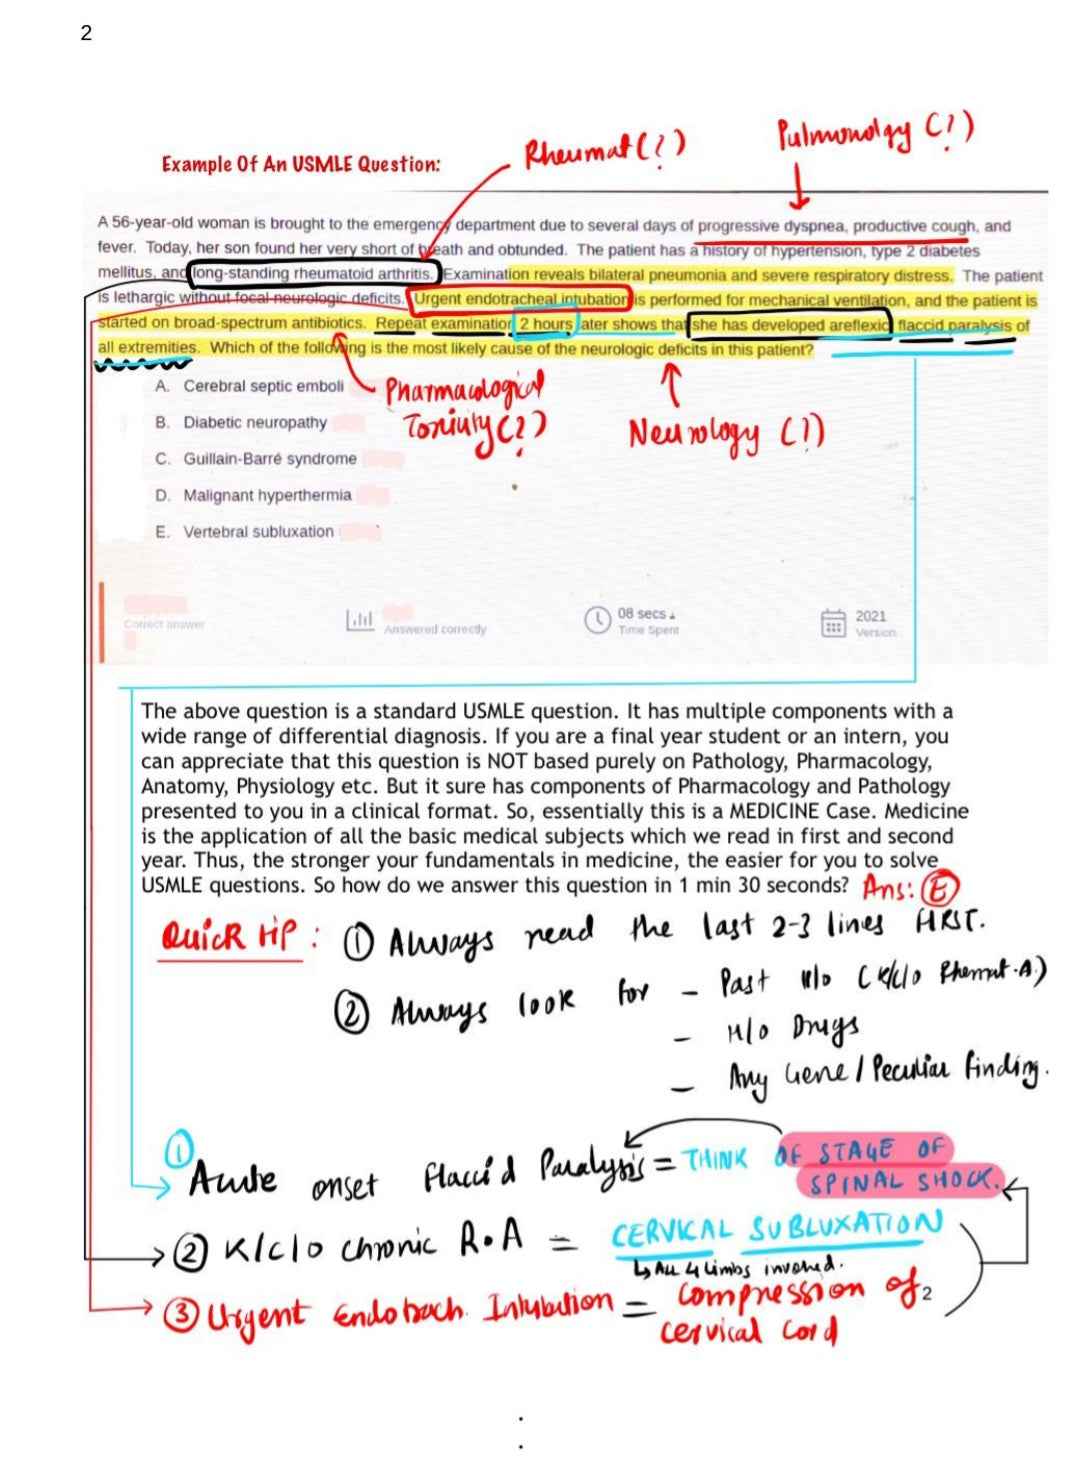 2
Rheumat (?)
Pulmonology (?)
Example Of An USMLE Question:
A 56-year-old woman is brought to the emergency department due to several days of progressive dyspnea, productive cough, and
fever. Today, her son found her very short of breath and obtunded. The patient has a history of hypertension, type 2 diabetes
mellitus, and long-standing rheumatoid arthritis. Examination reveals bilateral pneumonia and severe respiratory distress. The patient
is lethargic without focal neurologic deficits. Urgent endotracheal intubation is performed for mechanical ventilation, and the patient is
started on broad-spectrum antibiotics. Repeat examination 2 hours later shows that she has developed areflexic flaccid paralysis of
all extremities. Which of the following is the most likely cause of the neurologic deficits in this patient?
A. Cerebral septic emboli
Pharmacological
B. Diabetic neuropathy
Toxicity (?)
Neurology (?)
C. Guillain-Barré syndrome
D. Malignant hyperthermia
E. Vertebral subluxation
08 secs
2021
Correct answer
Answered correctly
Time Spent
Version
The above question is a standard USMLE question. It has multiple components with a
wide range of differential diagnosis. If you are a final year student or an intern, you
can appreciate that this question is NOT based purely on Pathology, Pharmacology,
Anatomy, Physiology etc. But it sure has components of Pharmacology and Pathology
presented to you in a clinical format. So, essentially this is a MEDICINE Case. Medicine
is the application of all the basic medical subjects which we read in first and second
year. Thus, the stronger your fundamentals in medicine, the easier for you to solve
USMLE questions. So how do we answer this question in 1 min 30 seconds? Ans: E
Quick tip : 1 Always read the last 2-3 lines FIRST.
2 Always look for - Past H/o (K/c/o Rhemat.A)
- H/o Drugs
- Any Gene / Peculiar finding.
1 Acute onset flaccid Paralysis = THINK OF STAGE OF
SPINAL SHOCK.
2 K/c/o chronic R.A = CERVICAL SUBLUXATION
↳ All 4 limbs involved.
3 Urgent Endotrach. Intubation = compression of
cervical cord
2